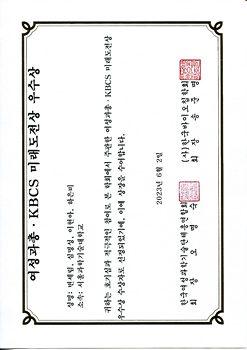 여성과총·KBCS 미래도전상 우수상
성명: 변채림, 심명성, 이현아, 하은미
소속: 서울과학기술대학교
귀하는 호기심과 적극적인 참여로 본 학회에서 주관한 여성과총·KBCS 미래도전상
우수상 수상자로 선정되었기에, 이에 상장을 수여합니다.
2023년 6월 2일
한국여성과학기술단체총연합회
회 장 오 명 숙
(사)한국바이오칩학회
회 장 송 준 명